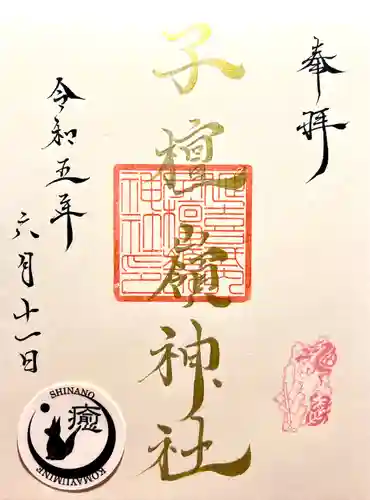 奉拝
子檀嶺神社
令和五年
六月十一日
SHINANO
癒
KOMAYUMINE